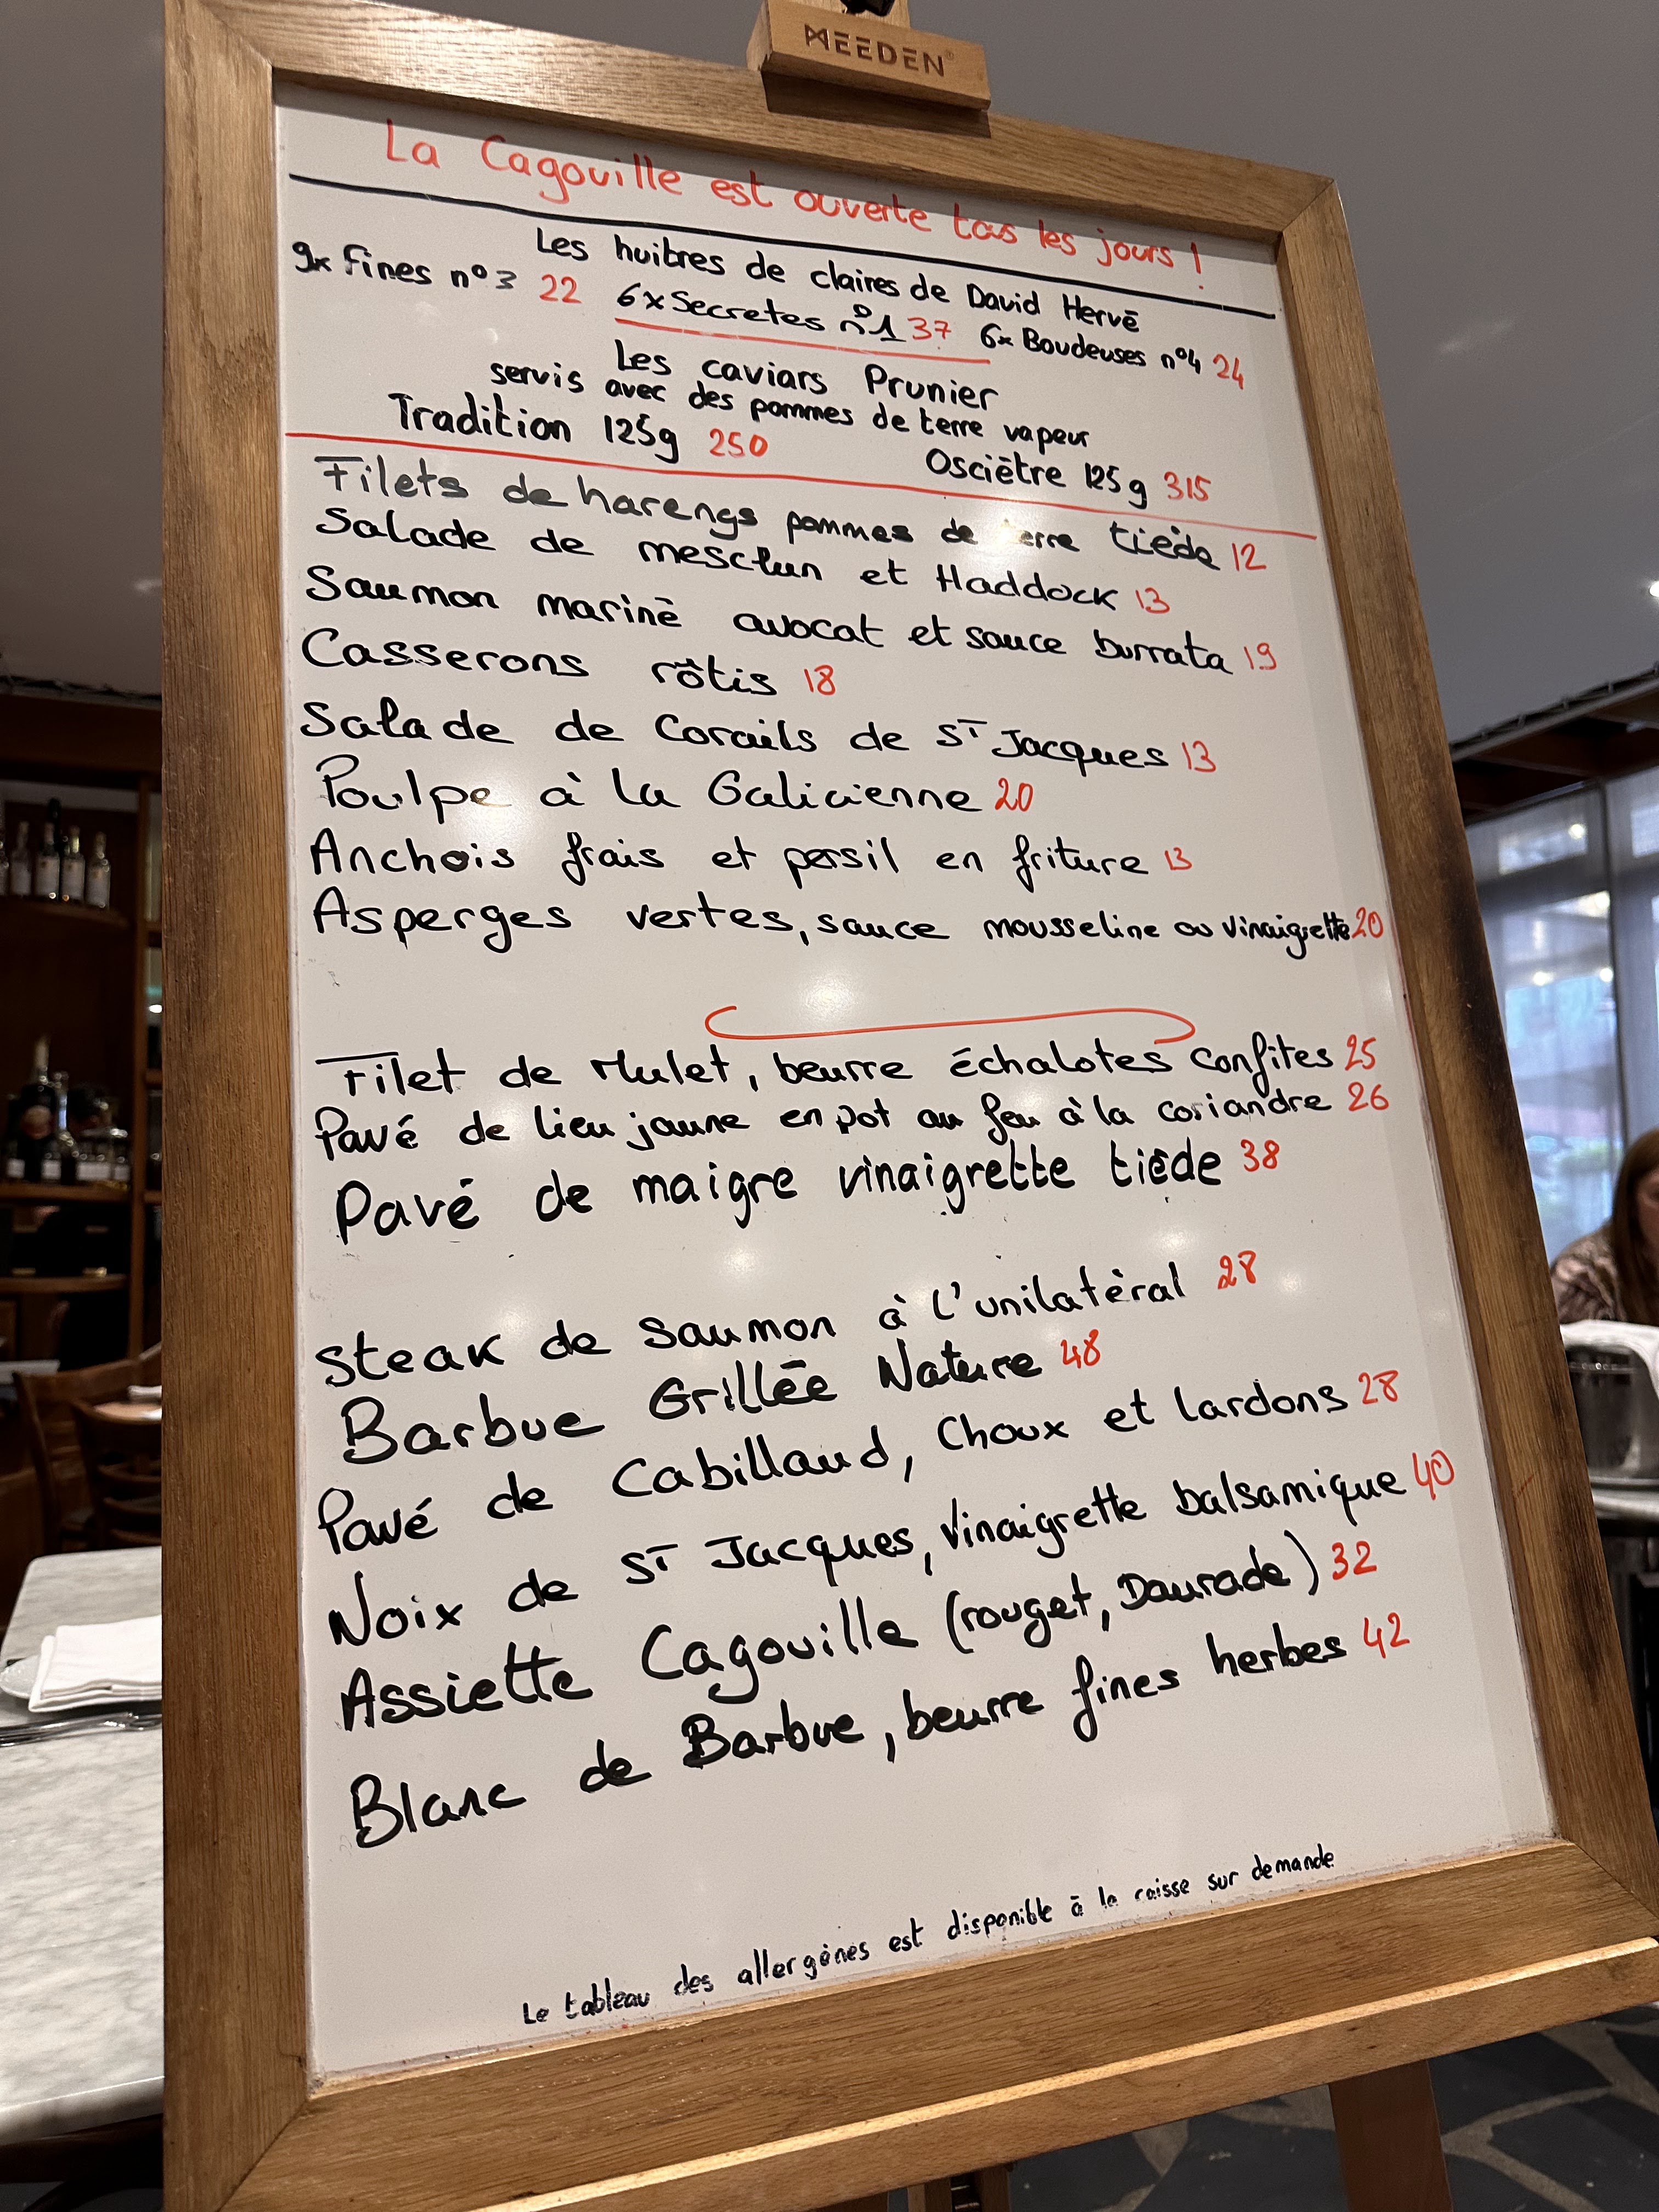 MEEDEN
La Cagouille est ouverte tous les jours !
Les huitres de claires de David Hervé
9x fines n°3 22 6x Secretes n°1 37 6x Boudeuses n°4 24
Les caviars Prunier
servis avec des pommes de terre vapeur
Tradition 125g 250 Osciètre 125g 315
Filets de harengs pommes de erre tiède 12
Salade de mesclun et Haddock 13
Saumon mariné avocat et sauce burrata 19
Casserons rôtis 18
Salade de Corails de ST Jacques 13
Poulpe à la Galicienne 20
Anchois frais et persil en friture 13
Asperges vertes, sauce mousseline ou vinaigrette 20
Filet de Mulet, beurre échalotes confites 25
Pavé de lieu jaune en pot au feu à la coriandre 26
Pavé de maigre vinaigrette tiède 38
Steak de saumon à l'unilatéral 28
Barbue Grillée Nature 48
Pavé de Cabillaud, Choux et lardons 28
Noix de ST Jacques, vinaigrette balsamique 40
Assiette Cagouille (rouget, Daurade) 32
Blanc de Barbue, beurre fines herbes 42
Le tableau des allergènes est disponible à la caisse sur demande